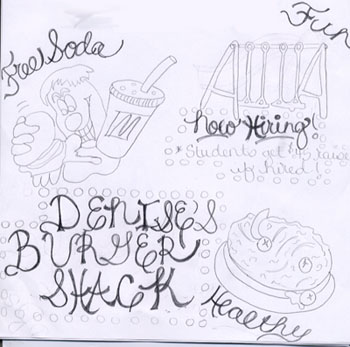 Free Soda
Fun
M
Now Hiring!
*Students get
raise
if hired!
DENISE'S
BURGER
SHACK
Healthy